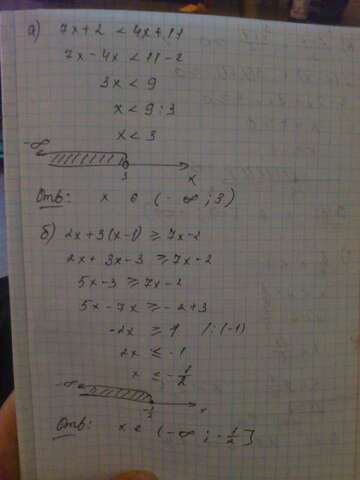 а) 7x+2 < 4x+11
7x-4x < 11-2
3x < 9
x < 9:3
x < 3
-∞
3 x
Отв: x ∈ (-∞ ; 3)
б) 2x+3(x-1) ≥ 7x-2
2x+3x-3 ≥ 7x-2
5x-3 ≥ 7x-2
5x-7x ≥ -2+3
-2x ≥ 1 /:(-1)
2x ≤ -1
x ≤ -1/2
-∞
-1/2 x
Отв: x ∈ (-∞ ; -1/2]